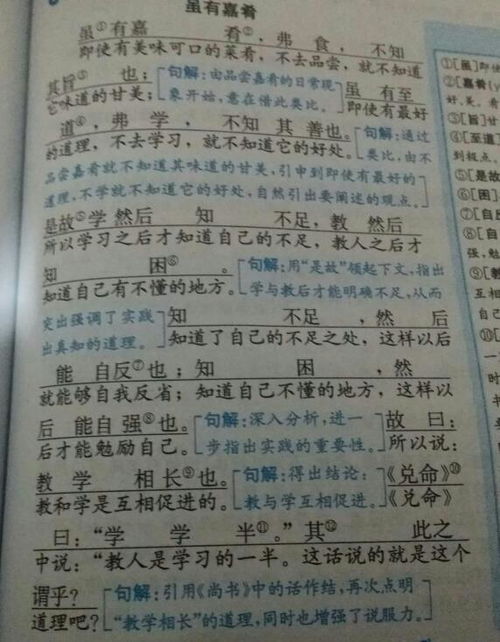 虽有嘉肴
虽①有嘉 肴②，弗 食，不知
即使有美味可口的菜肴，不去品尝，就不知道
其旨③ 也；［句解：由品尝嘉肴的日常现 虽 有至
它味道的甘美；象开始，意在借此类比。］即使有最好
道④，弗 学， 不知 其 善也。［句解：通过
的道理，不去学习，就不知道它的好处。类比，由不
品尝嘉肴就不知道其味道的甘美，引申到即使有最好的
道理，不学就不知道它的好处，自然引出要阐述的观点。］
是故⑤学 然后 知 不足，教 然后
所以学习之后才知道自己的不足，教人之后才
知 困⑥ 。［句解：用“是故”领起下文，指出
知道自己有不懂的地方。学与教后才能明确不足，从而
突出强调了实践 知 不足 ，然 后
出真知的道理。］知道了自己的不足之处，这样以后
能 自反⑦也；知 困 ，然
就能够自我反省；知道自己不懂的地方，这样以
后 能自强⑧也。［句解：深入分析，进一 故 曰：
后才能勉励自己。步指出实践的重要性。］所以说：
教 学 相长⑨也。［句解：得出结论： 《兑命》⑩
教和学是互相促进的。教与学互相促进。］《兑命》
曰：“学 学 半⑪。”其⑫ 此之
中说：“教人是学习的一半。这话说的就是这个
谓乎？［句解：引用《尚书》中的话作结，再次点明
道理吧？“教学相长”的道理，同时也增强了说服力。］
①［虽］即使
②［嘉肴
好，美。肴
③［旨］甘
④［至道］
到极点
⑤［是故
⑥［困］
⑦［自反
⑧［自
强，勉
⑨［教
互相
自己
⑩［